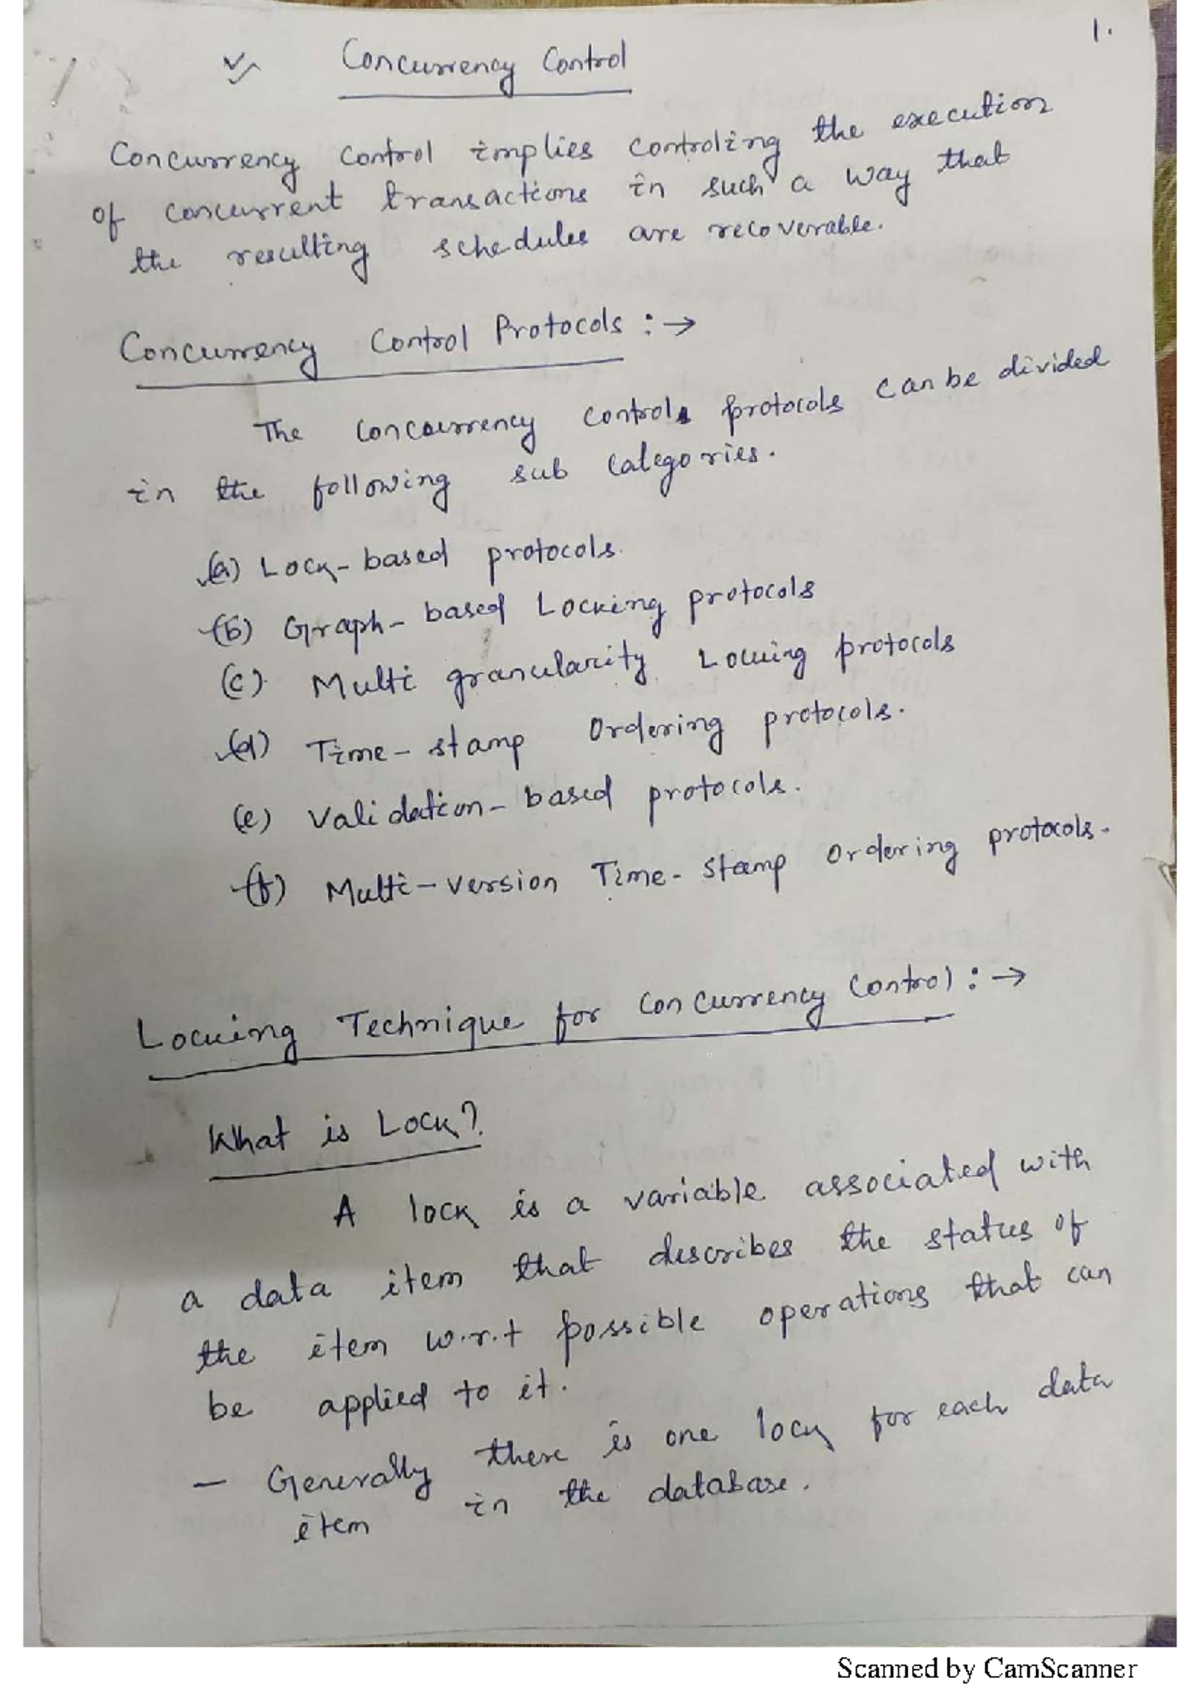 1.
Concurrency Control
Concurrency Control implies controling the execution
of concurrent transactions in such a way that
the resulting schedules are recoverable.
Concurrency Control Protocols :→
The Concurrency Controls protocols can be divided
in the following sub categories.
(a) Lock-based protocols.
(b) Graph-based Locking protocols
(c) Multi granularity Locking protocols
(d) Time-stamp Ordering protocols.
(e) Validation-based protocols.
(f) Multi-version Time-stamp Ordering protocols.
Locking Technique for Concurrency Control :→
What is Lock?
A lock is a variable associated with
a data item that describes the status of
the item w.r.t possible operations that can
be applied to it.
— Generally there is one lock for each data
item in the database.
Scanned by CamScanner